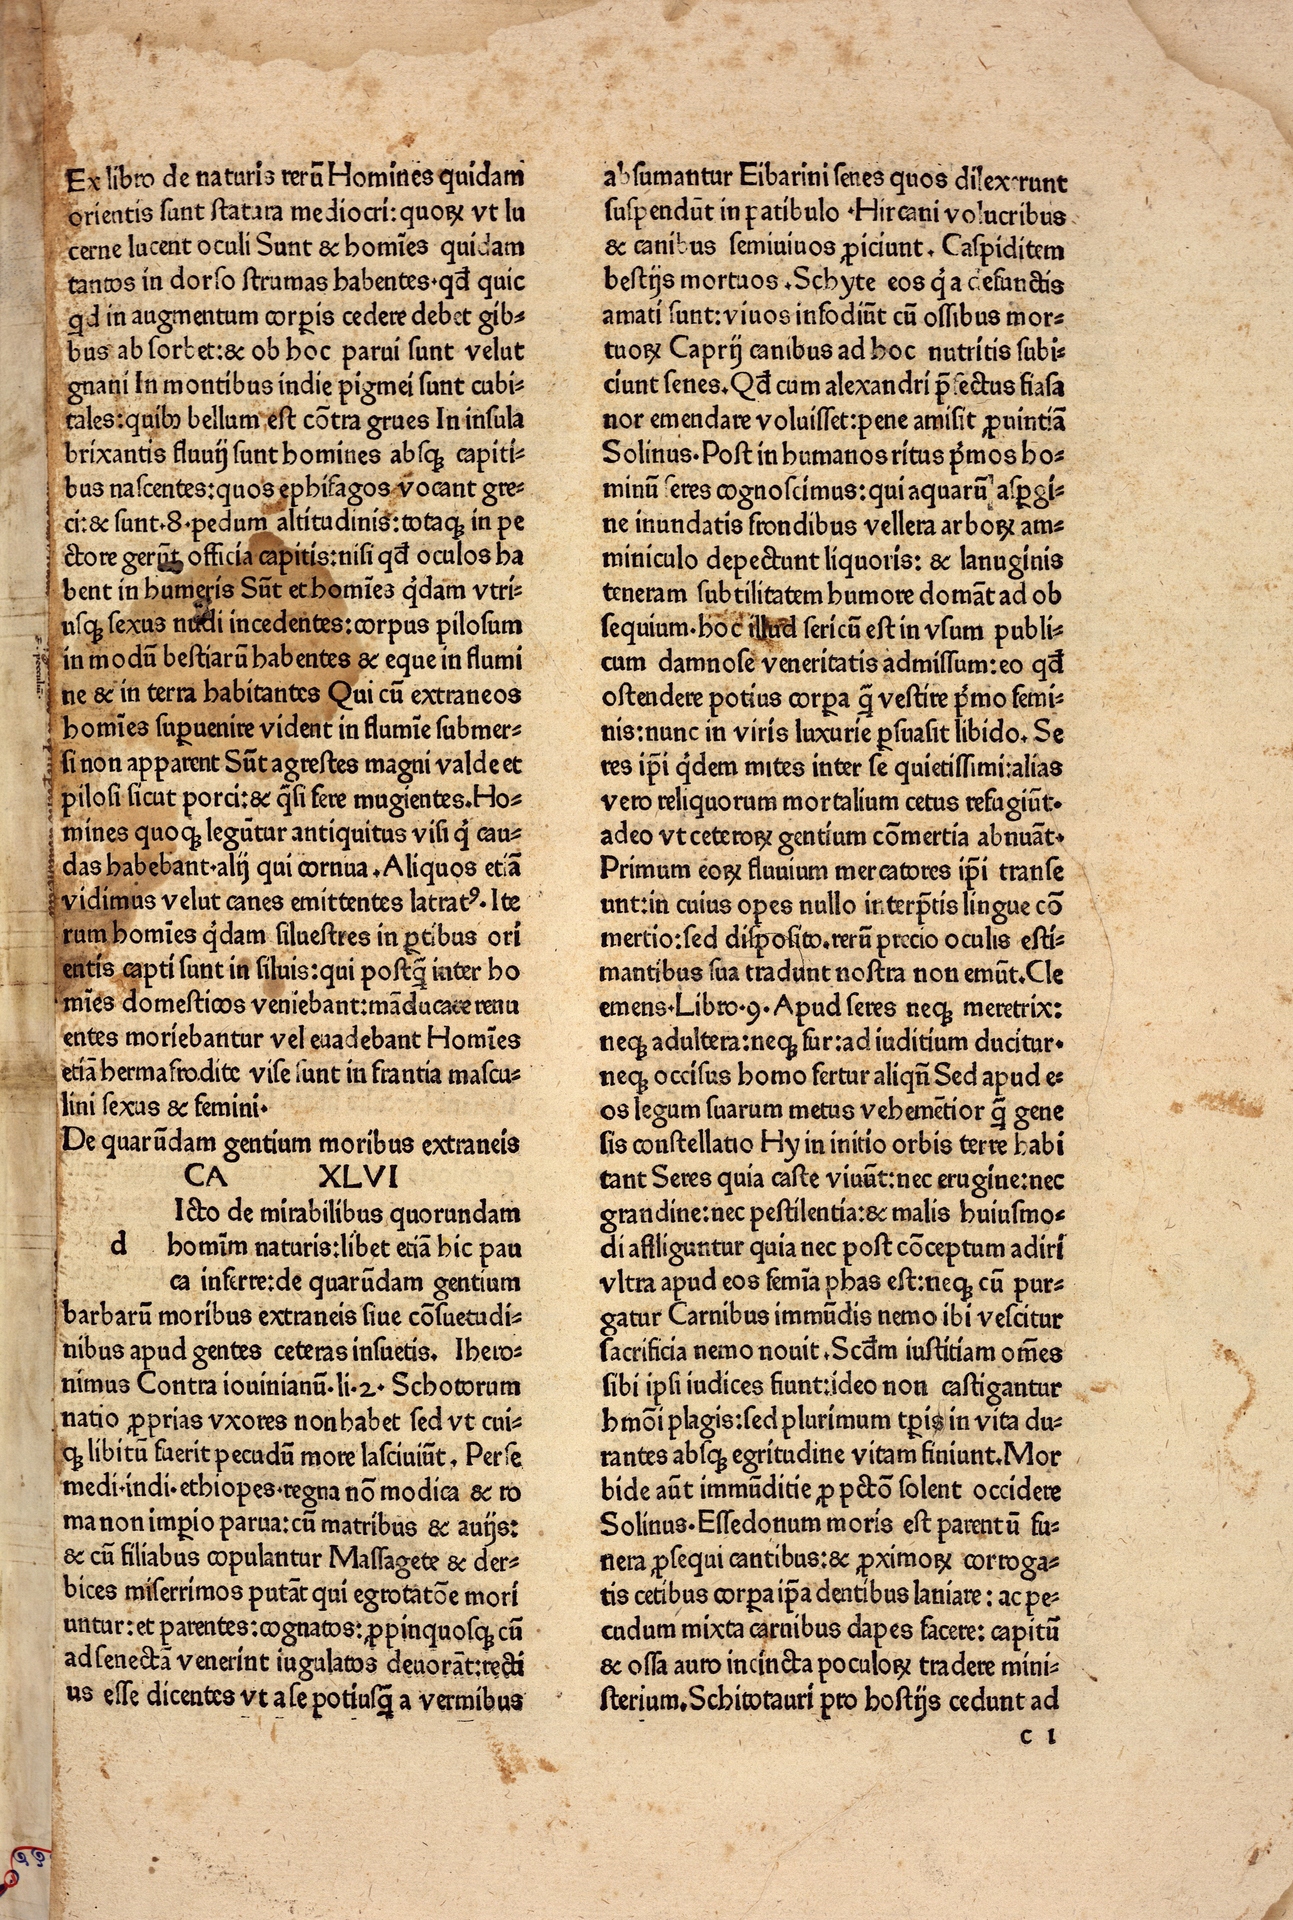 Ex libro de naturis rerū Homines quidam
orientis sunt statura mediocri: quoꝝ vt lu
cerne lucent oculi Sunt & homīes quidam
tantos in dorso strumas habentes·qd̄ quic
qd in augmentum corꝑis cedere debet gib⸗
bus absorbet:& ob hoc parui sunt velut
gnani In montibus indie pigmei sunt cubi⸗
tales:quibꝫ bellum est cōtra grues In insula
brixantis fluuij sunt homines absqꝫ capiti⸗
bus nascentes:quos ephifagos vocant gre⸗
ci:& sunt·8·pedum altitudinis:totaqꝫ in pe
ctore gerūt officia capitis:nisi qd̄ oculos ha
bent in humeris Sūt et homīes q̇dam vtri⸗
usqꝫ sexus nudi incedentes:corpus pilosum
in modū bestiarū habentes & eque in flumi
ne & in terra habitantes Qui cū extraneos
homīes suꝑuenire vident in flumīe submer⸗
si non apparent Sūt agrestes magni valde et
pilosi sicut porci:& q̄si fere mugientes.Ho⸗
mines quoqꝫ legūtur antiquitus visi q̇ cau⸗
das habebant·alij qui cornua.Aliquos etiā
vidimus velut canes emittentes latratꝰ.Ite
rum homīes q̇dam siluestres in ꝑtibus ori
entis capti sunt in siluis:qui postq̄ inter ho
mīes domesticos veniebant:māducare renu
entes moriebantur vel euadebant Homīes
etiā hermafrodite vise sunt in frantia mascu⸗
lini sexus & femini·
De quarūdam gentium moribus extraneis
CA XLVI
Icto de mirabilibus quorundam
d homīm naturis:libet etiā hic pau
ca inferre:de quarūdam gentium
barbarū moribus extraneis siue cōsuetudi⸗
nibus apud gentes ceteras insuetis. Ihero⸗
nimus Contra iouinianū·li·2· Schotorum
natio ꝓprias vxores non habet sed vt cui⸗
qꝫ libitū fuerit pecudū more lasciuiūt. Perse
medi·indi·ethiopes·regna nō modica & ro
ma non imꝑio parua:cū matribus & auijs:
& cū filiabus copulantur Massagete & der⸗
bices miserrimos putāt qui egrotatōe mori
untur:et parentes:cognatos:ꝓpinquosqꝫ cū
ad senectā venerint iugulatos deuorāt:recti
us esse dicentes vt a se potiusq̄ a vermibus
absumantur Eibarini senes quos dilexerunt
suspendūt in patibulo ·Hircani volucribus
& canibus semiuiuos ꝓiciunt. Caspiditem
bestijs mortuos .Schyte eos q̇ a defunctis
amati sunt:viuos infodiūt cū ossibus mor⸗
tuoꝝ Caprij canibus ad hoc nutritis subi⸗
ciunt senes.Qd̄ cum alexandri p̄fectus fiasa
nor emendare voluisset:pene amisit ꝓuintiā
Solinus·Post in humanos ritus ṗmos ho⸗
minū seres cognoscimus:qui aquarū asꝑgi⸗
ne inundatis frondibus vellera arboꝝ am⸗
miniculo depectunt liquoris: & lanuginis
teneram subtilitatem humore domāt ad ob
sequium·hoc illud sericū est in vsum publi⸗
cum damnose veneritatis admissum:eo qd̄
ostendere potius corꝑa q̄ vestire ṗmo femi⸗
nis:nunc in viris luxurie ꝑsuasit libido. Se
res ip̄i q̇dem mites inter se quietissimi:alias
vero reliquorum mortalium cetus refugiūt·
adeo vt ceteroꝝ gentium cōmertia abnuāt·
Primum eoꝝ fluuium mercatores ip̄i transe
unt:in cuius opes nullo interp̄tis lingue cō
mertio:sed disposito.rerū precio oculis esti⸗
mantibus sua tradunt nostra non emūt.Cle
emens·Libro·9·Apud seres neqꝫ meretrix:
neqꝫ adultera:neqꝫ fur:ad iuditium ducitur·
neqꝫ occisus homo fertur aliqn̄ Sed apud e⸗
os legum suarum metus vehemētior q̄ gene
sis constellatio Hy in initio orbis terre habi
tant Seres quia caste viuūt:nec erugine:nec
grandine:nec pestilentia:& malis huiusmo⸗
di affliguntur quia nec post cōceptum adiri
vltra apud eos femīa phas est:neqꝫ cū pur⸗
gatur Carnibus immūdis nemo ibi vescitur
sacrificia nemo nouit .Scd̄m iustitiam om̄es
sibi ipsi iudices fiunt:ideo non castigantur
hmōi plagis:sed plurimum tꝑis in vita du⸗
rantes absqꝫ egritudine vitam finiunt.Mor
bide aūt immūditie ꝓ pctō solent occidere
Solinus·Essedonum moris est parentū fu⸗
nera ꝓsequi cantibus:& ꝓximoꝝ corroga⸗
tis cetibus corꝑa ip̄a dentibus laniare: ac pe⸗
cudum mixta carnibus dapes facere: capitū
& ossa auro incincta poculoꝝ tradere mini⸗
sterium.Schitotauri pro hostijs cedunt ad
c 1